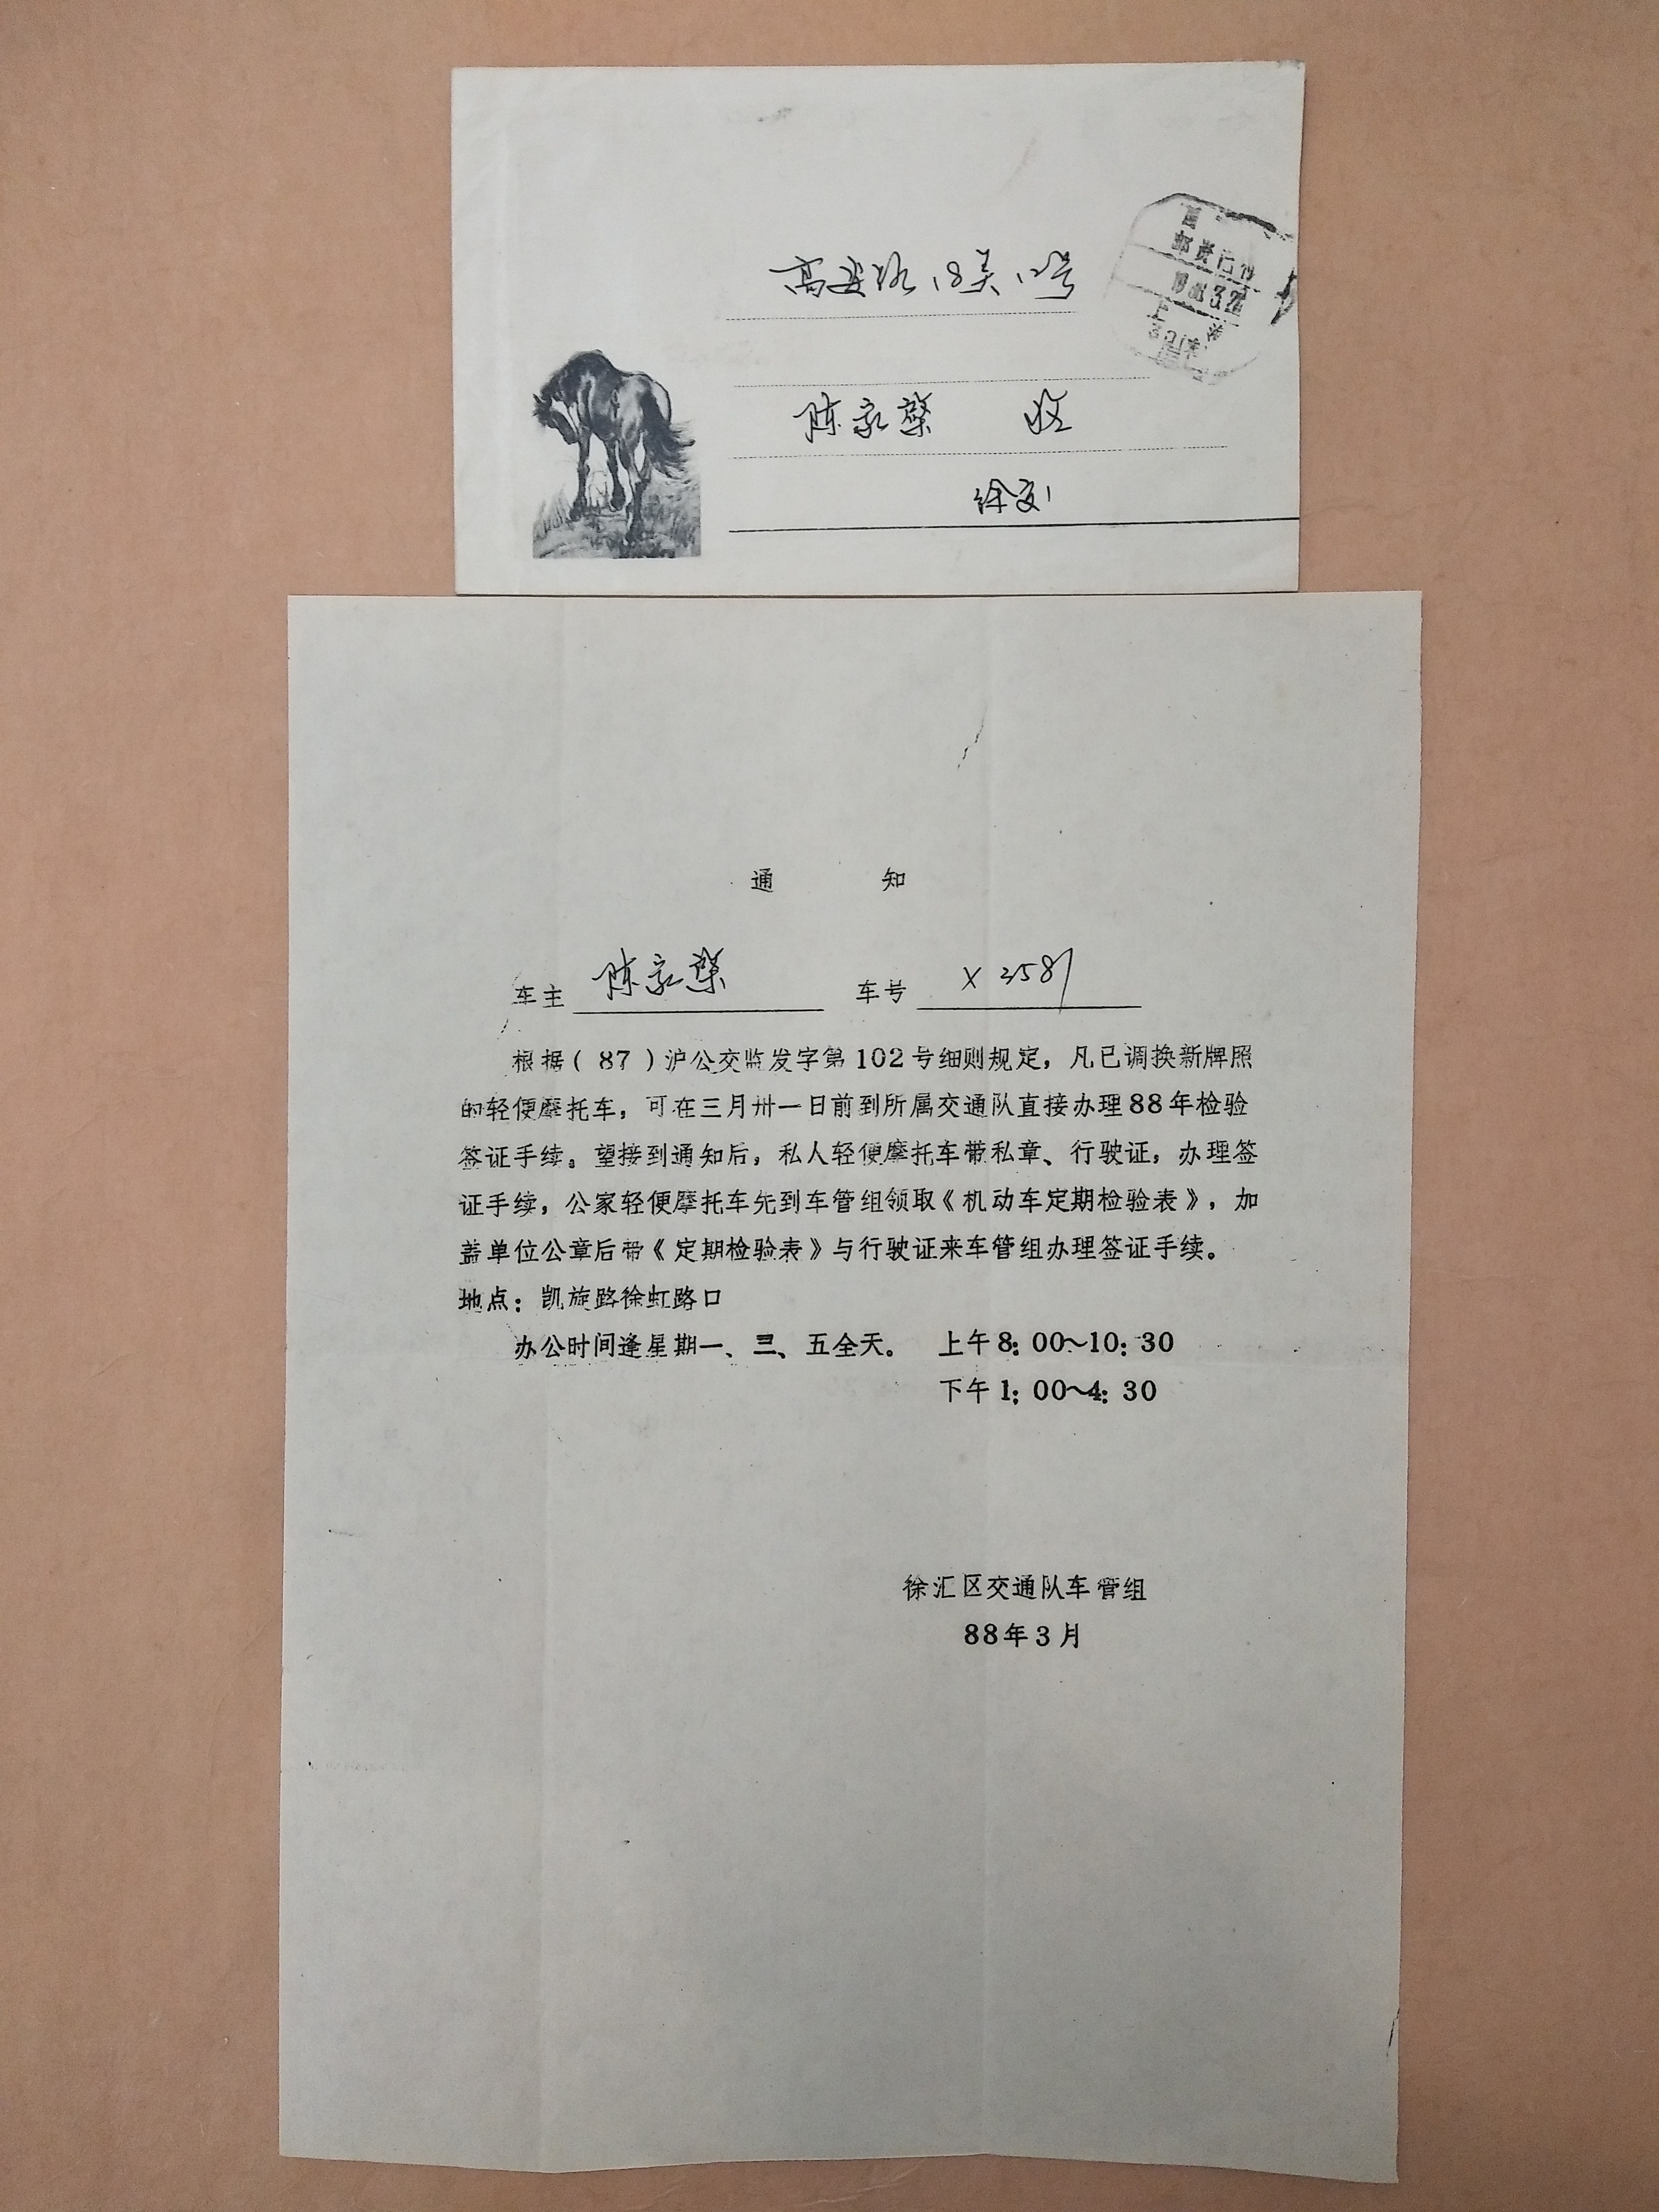 高安路18弄12号
邮资已付
陈家燊 收
徐交
通 知
车主 陈家燊 车号 X 3581
根据(87)沪公交监发字第102号细则规定,凡已调换新牌照
的轻便摩托车,可在三月卅一日前到所属交通队直接办理88年检验
签证手续。望接到通知后,私人轻便摩托车带私章、行驶证,办理签
证手续,公家轻便摩托车先到车管组领取《机动车定期检验表》,加
盖单位公章后带《定期检验表》与行驶证来车管组办理签证手续。
地点:凯旋路徐虹路口
办公时间逢星期一、三、五全天。 上午8:00~10:30
下午1:00~4:30
徐汇区交通队车管组
88年3月